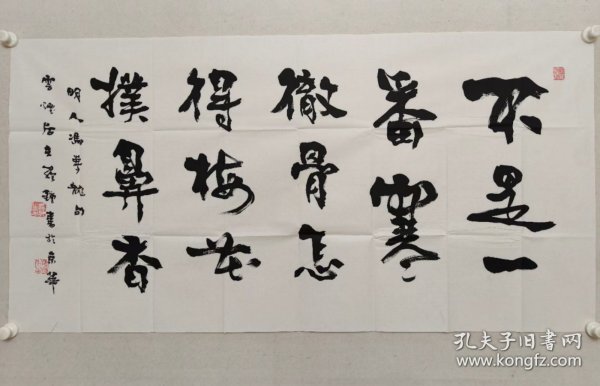 不是一
番寒
徹骨怎
得梅花
撲鼻香
明人馮夢龍句
孔夫子旧书网
www.kongfz.com